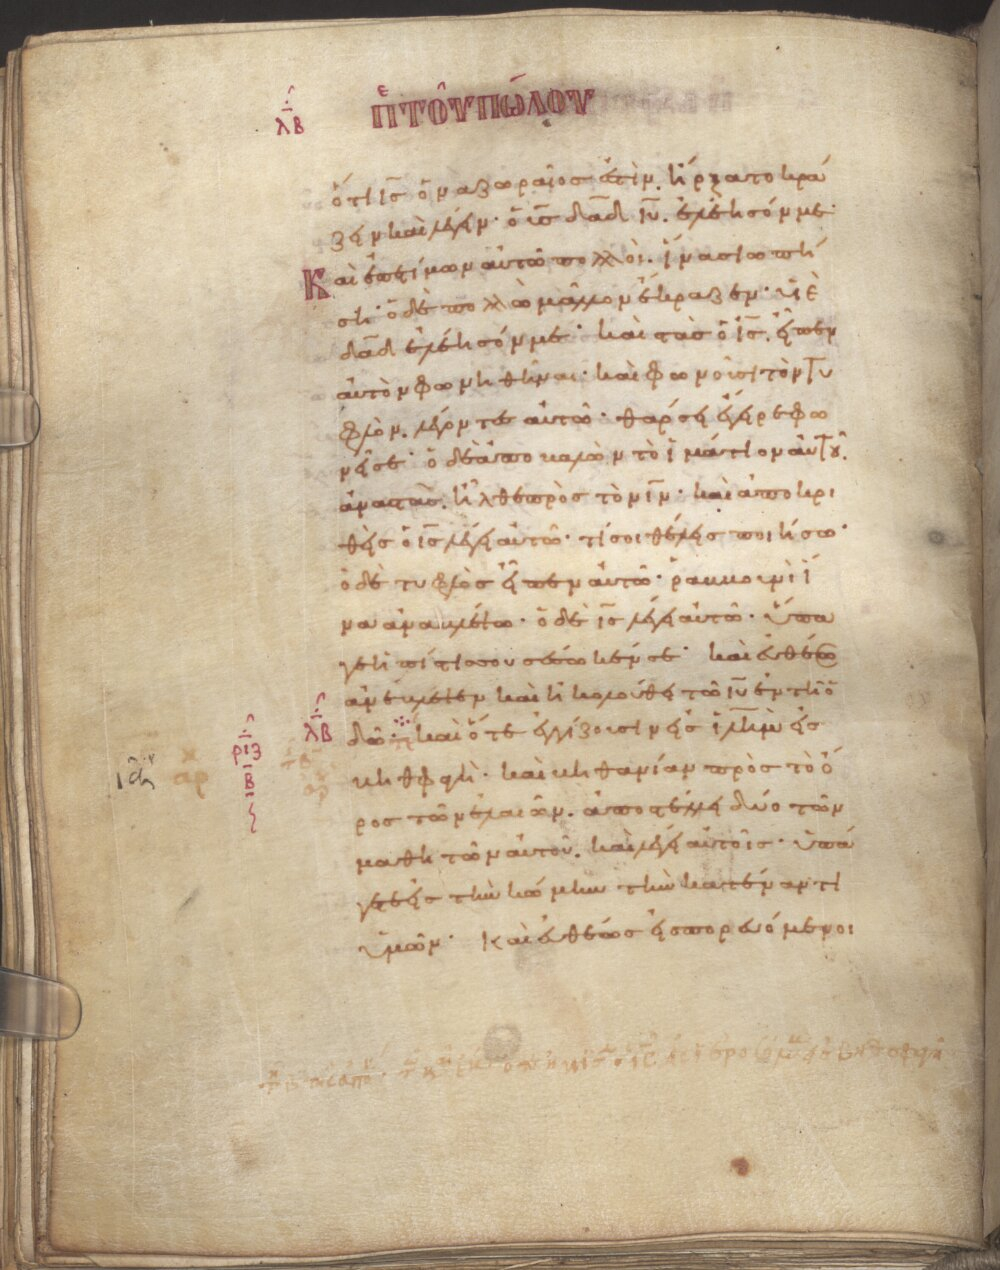 λβ ἐπὶ τοῦ πώλου
ὅτι ις ὁ ναζωραῖος ἐστὶν. ἤρξατο κρά
ζειν καὶ λέγειν· ὁ υς δαδ ιυ. ἐλέησόν με·
Καὶ ἐπετίμων αὐτῶ πολλοὶ. ἵνα σιωπή
ση· ὁ δὲ πολλῶ μᾶλλον ἔκραζεν· υἱὲ
δαδ ἐλέησόν με· καὶ στὰς ὁ ις. εἶπεν
αὐτὸν φωνηθῆναι· καὶ φωνοῦσι τὸν τυ
φλὸν. λέγοντες αὐτῶ· θάρσει ἔγειρε φω
νεῖ σε· ὁ δὲ ἀποβαλὼν τὸ ἱμάτιον αὐτοῦ.
ἀναστὰς. ἦλθε πρὸς τὸν ιν· καὶ ἀποκρι
θεὶς ὁ ις λέγει αὐτῶ· τί σοι θέλεις ποιήσω·
ὁ δὲ τυφλὸς εἶπεν αὐτῶ· ῥαββουνὶ ἵ
να ἀναβλέψω· ὁ δὲ ις λέγει αὐτῶ· ὕπα
γε ἡ πίστις σου σέσωκέν σε· καὶ εὐθέως
ἀνέβλεψεν καὶ ἠκολούθει τῶ ιυ ἐν τῆ ὁ
λβ δῶ· καὶ ὅτε ἐγγίζουσιν εἰς ιλημ εἰς
ριζ β
βηθφαγὴ· καὶ βηθανίαν πρὸς τὸ ὄ
ρος τῶν ἐλαιῶν. ἀποστέλλει δύο τῶν
μαθητῶν αὐτοῦ. καὶ λέγει αὐτοῖς· ὑπά
γετε εἰς τὴν κώμην τὴν κατέναντι
ὑμῶν· Καὶ εὐθέως εἰσπορευόμενοι